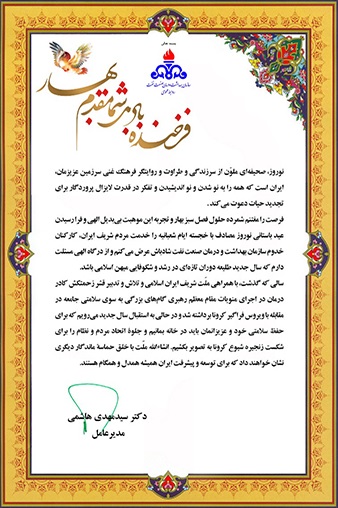 بسمه تعالی
سازمان بهداشت و درمان صنعت نفت
فرخنده باد بر شما مقدم بهار
نوروز، صحیفه‌ای ملوّن از سرزندگی و طراوت و روایتگر فرهنگ غنی سرزمین عزیزمان،
ایران است که همه را به نو شدن و نو اندیشیدن و تفکر در قدرت لایزال پروردگار برای
تجدید حیات دعوت می‌کند.
فرصت را مغتنم شمرده حلول فصل سبز بهار و تجربه این موهبت بی‌بدیل الهی و فرا رسیدن
عید باستانی نوروز مصادف با خجسته ایام شعبانیه را خدمت مردم شریف ایران، کارکنان
خدوم سازمان بهداشت و درمان صنعت نفت شادباش عرض می‌کنم و از درگاه الهی مسئلت
دارم که سال جدید طلیعه دوران تازه‌ای در رشد و شکوفایی میهن اسلامی باشد.
سالی که گذشت، با همراهی ملّت شریف ایران اسلامی و تلاش و تدبیر قشر زحمتکش کادر
درمان در اجرای منویات مقام معظم رهبری گام‌های بزرگی به سوی سلامتی جامعه در
مقابله با ویروس فراگیر کرونا برداشته شد و در حالی به استقبال سال جدید می‌رویم که برای
حفظ سلامتی خود و عزیزانمان باید در خانه بمانیم و جلوهٔ اتحاد مردم و نظام را برای
شکست زنجیره شیوع کرونا به تصویر بکشیم. انشاءالله ملّت با خلق حماسهٔ ماندگار دیگری
نشان خواهند داد که برای توسعه و پیشرفت ایران همیشه همدل و همگام هستند.
دکتر سیدمهدی هاشمی
مدیرعامل